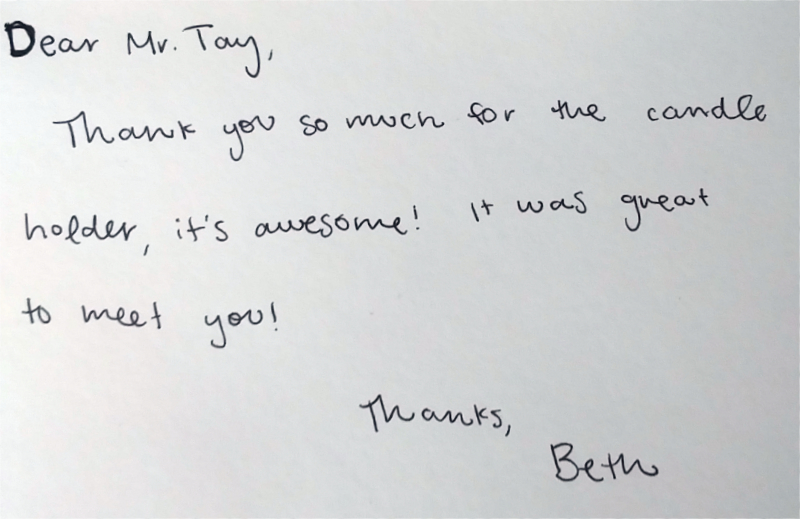 Dear Mr. Tay,
Thank you so much for the candle
holder, it's awesome! It was great
to meet you!
Thanks,
Beth